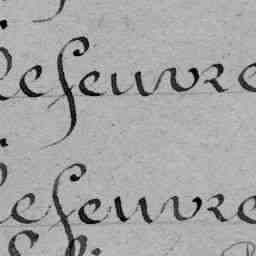 Lefeuvre
Lefeuvre